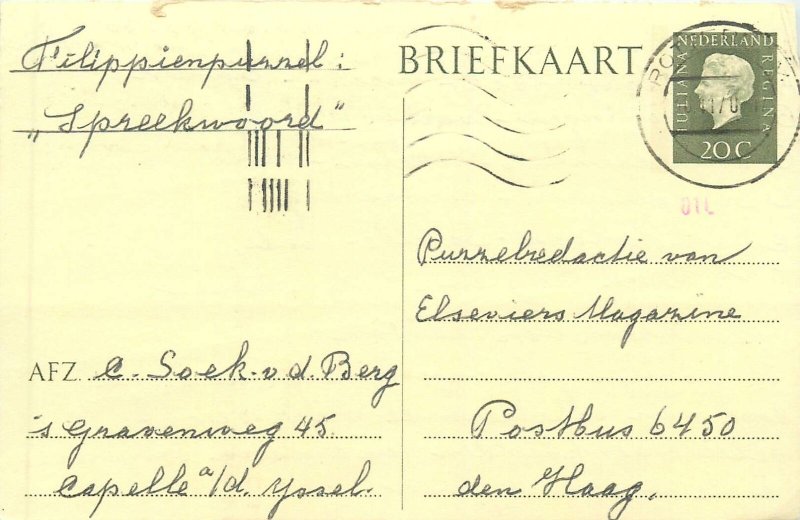 Filippienpuzzel:
„Spreekwoord"
BRIEFKAART
NEDERLAND
JULIANA
REGINA
20 C
Puzzelredactie van
Elseviers Magazine
Postbus 6450
den Haag.
AFZ C. Soek-v.d. Berg
's Gravenweg 45
Capelle a/d. Yssel.